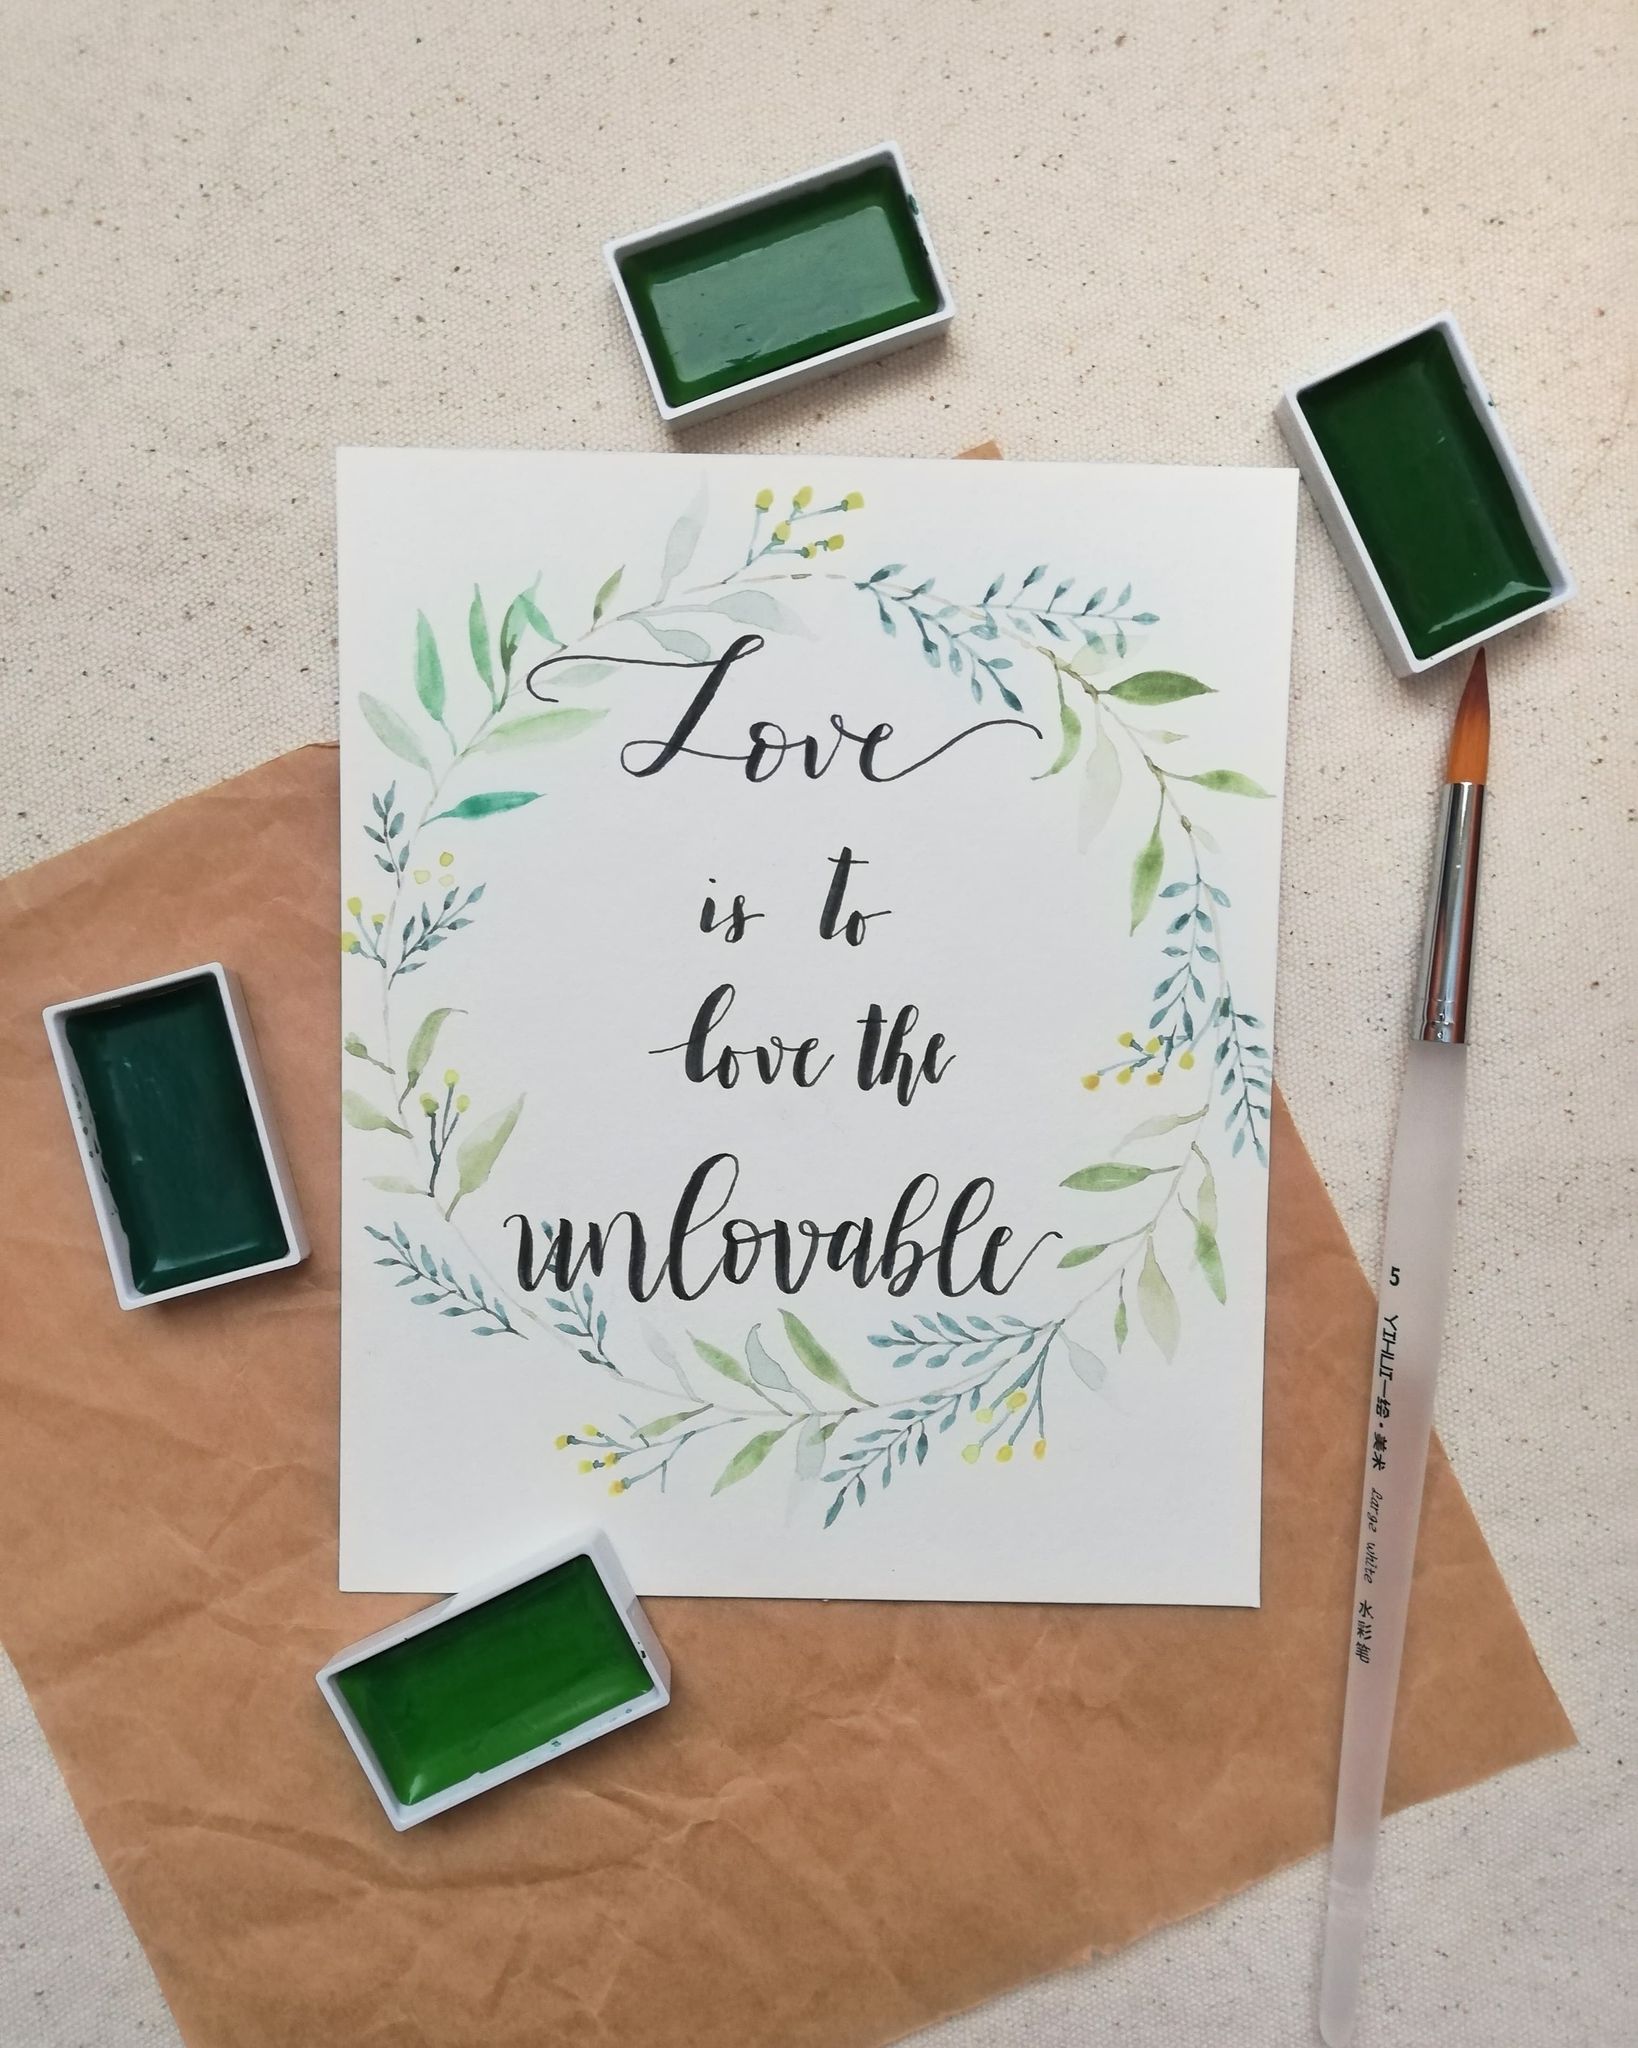 Love
is to
love the
unlovable
5 YIHUI一绘·美术 Large white 水彩笔